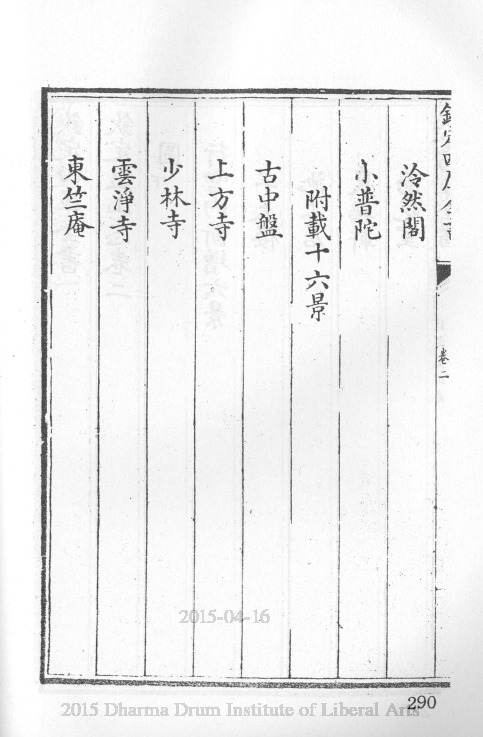 欽定四庫全書
卷二
泠然閣
小普陀
附載十六景
古中盤
上方寺
少林寺
雲淨寺
東竺庵
2015-04-16
290
2015 Dharma Drum Institute of Liberal Arts